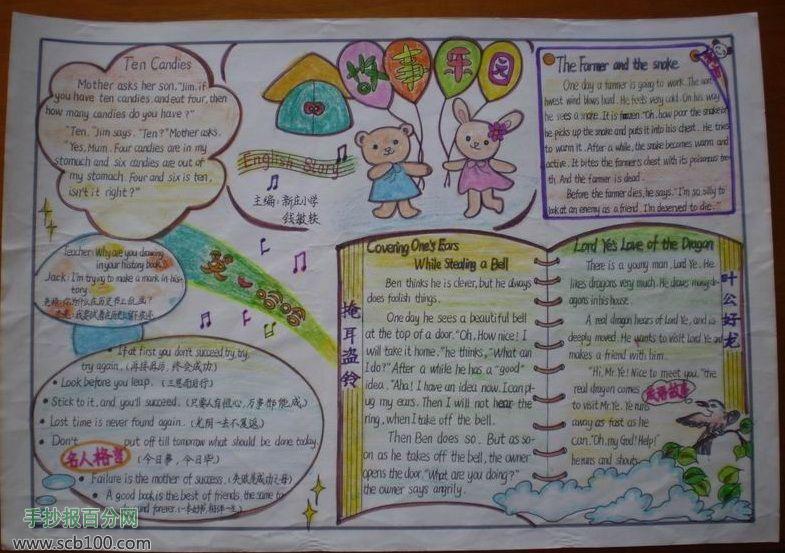 Ten Candies
Mother asks her son, "Jim, if
you have ten candies, and eat four, then
how many candies do you have?"
"Ten," Jim says. "Ten?" Mother asks.
"Yes, Mum. Four candies are in my
stomach and six candies are out of
my stomach. Four and six is ten,
isn't it right?"
故事乐园
English Story
主编:新庄小学
钱敏轶
The Farmer and the snake
One day a farmer is going to work. The nort
hwest wind blows hard. He feels very cold. On his way
he sees a snake. It is frozen. "Oh, how poor the snake is!"
he picks up the snake and puts it into his chest. He tries
to warm it. After a while, the snake becomes warm and
active. It bites the farmer's chest with its poisonous too
th. And the farmer is dead.
Before the farmer dies, he says. "I'm so silly to
look at an enemy as a friend. I'm deserved to die."
Teacher: Why are you drawing
in your history book?
Jack: I'm trying to make a mark in his-
tory.
老师:你为什么在历史书上乱画?
If at first you don't succeed try, try,
try again. (再接再厉,终会成功)
Look before you leap. (三思而后行)
Stick to it, and you'll succeed. (只要人有恒心,万事都能成。)
Lost time is never found again. (光阴一去不复返)
Don't put off till tomorrow what should be done today.
名人格言 (今日事,今日毕)
Failure is the mother of success. (失败是成功之母)
A good book is the best of friends, the same to
and forever.
Covering One's Ears
While Stealing a Bell
掩耳盗铃
Ben thinks he is clever, but he always
does foolish things.
One day he sees a beautiful bell
at the top of a door. "Oh, How nice! I
will take it home." he thinks, "What can
I do?" After a while he has a "good"
idea. "Aha! I have an idea now. I can pl
ug my ears. Then I will not hear the
ring, when I take off the bell.
Then Ben does so. But as so-
on as he takes off the bell, the owner
opens the door. "What are you doing?"
the owner says angrily.
Lord Ye's Love of the Dragon
叶公好龙
There is a young man, Lord Ye. He
likes dragons very much. He draws many d-
agons in his house.
A real dragon hears of Lord Ye, and is
deeply moved. He wants to visit Lord Ye and
makes a friend with him.
"Hi, Mr. Ye! Nice to meet you." the
real dragon comes
成语故事
to visit Mr. Ye. Ye runs
away as fast as he
can. "Oh, my God! Help!"
he runs and shouts.
手抄报百分网
www.scb100.com